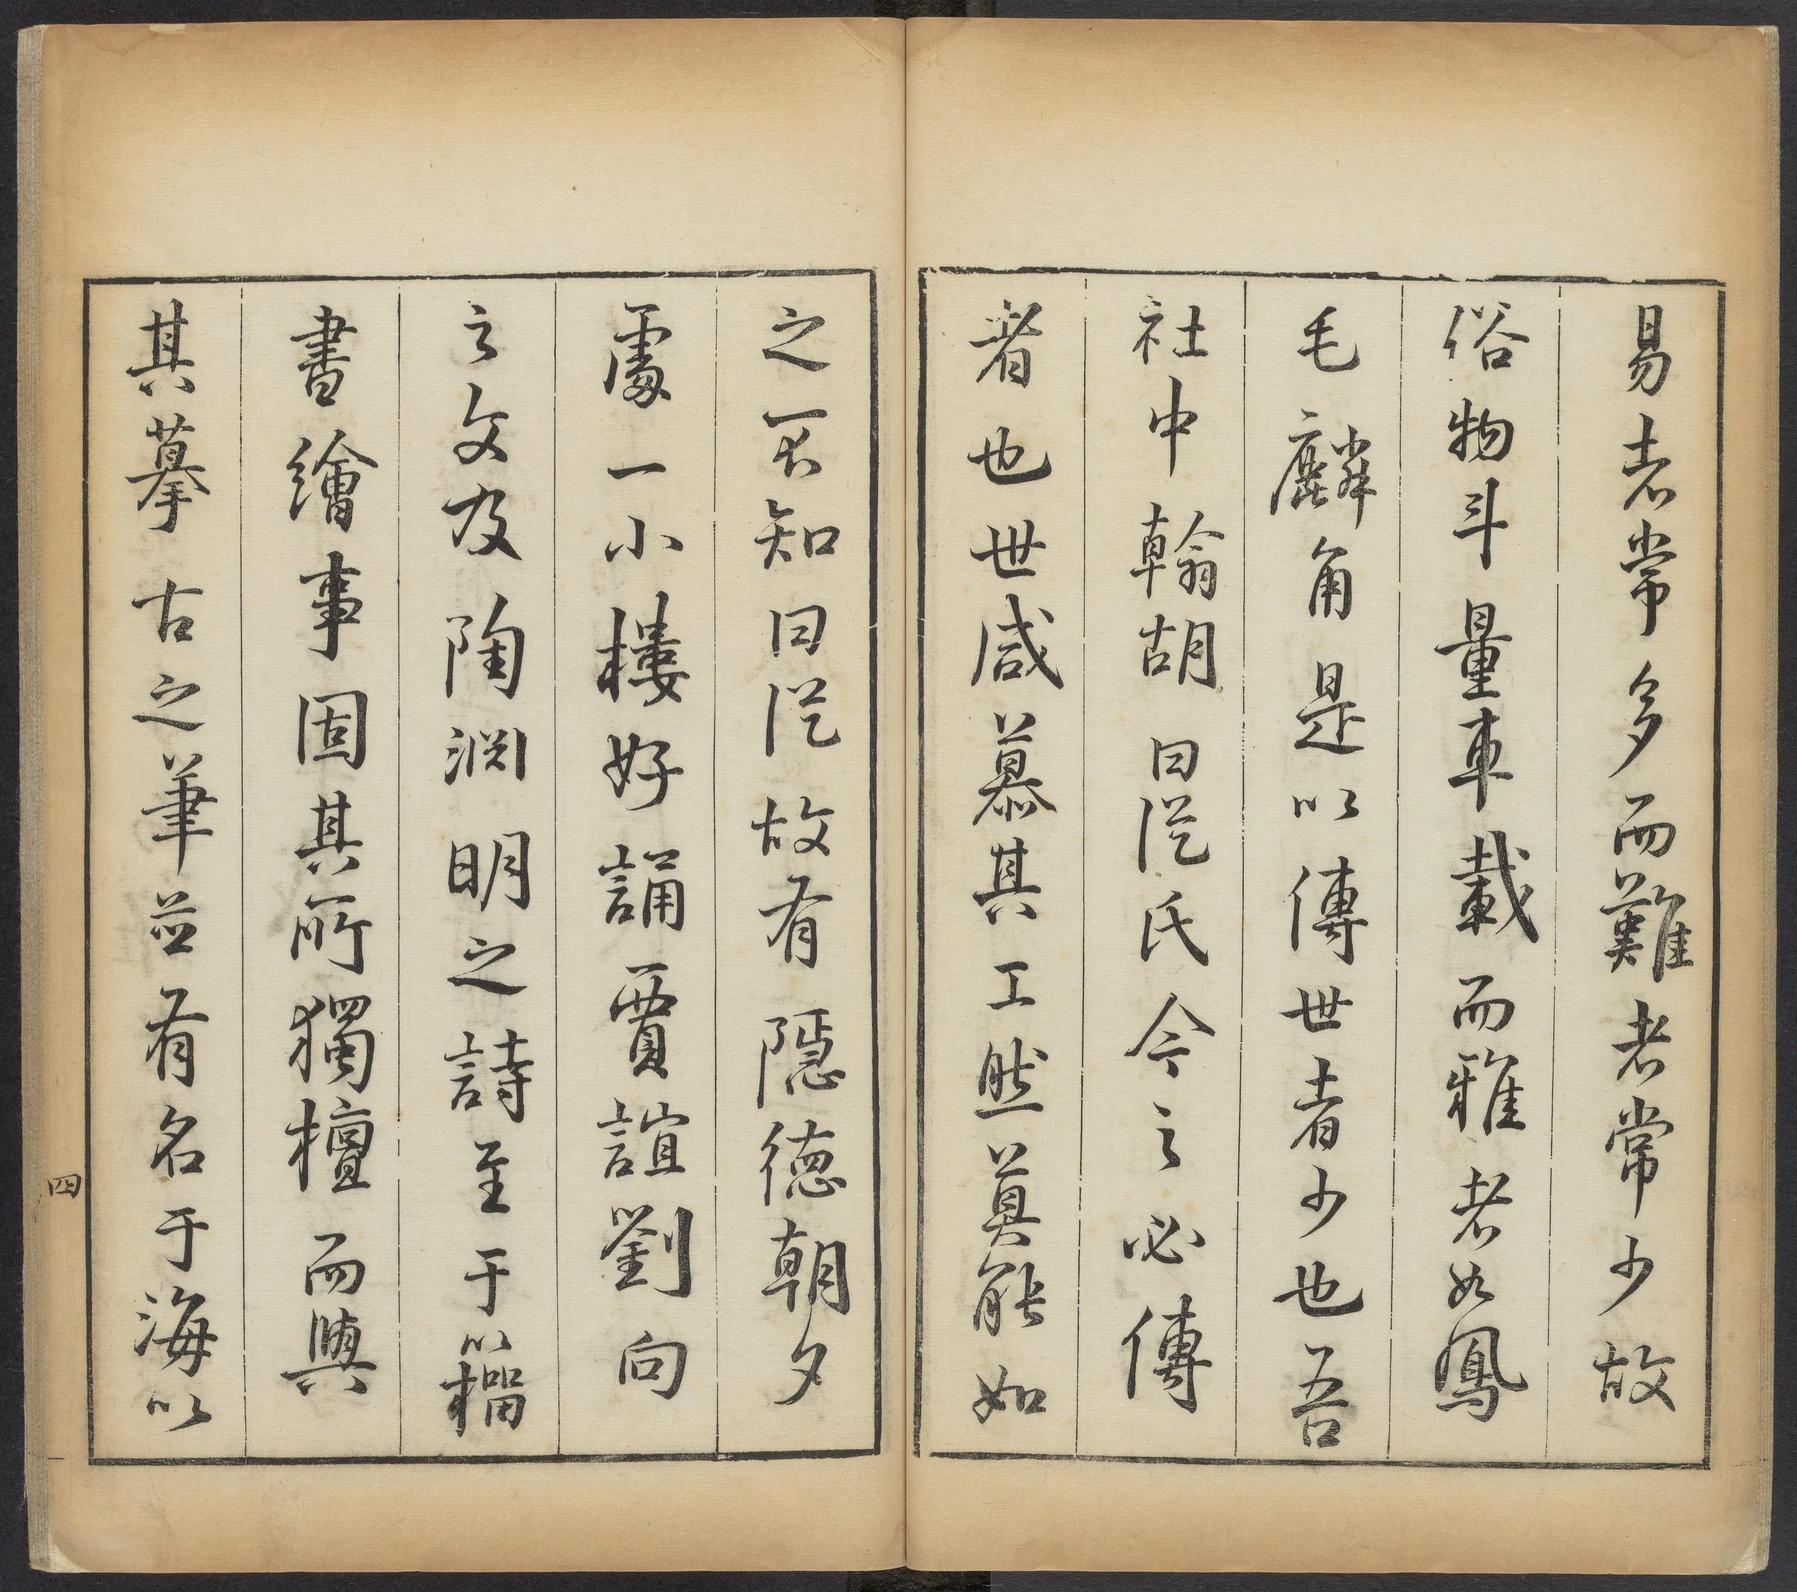 易者常多而難者常少故
俗物斗量車載而雅者如鳳
毛麟角是以傳世者少也吾
社中翰胡曰從氏今之必傳
者也世咸慕其工然莫能如
之不知曰從故有隱德朝夕
處一小樓好誦賈誼劉向
之文及陶淵明之詩至于籀
書繪事固其所獨擅而與
其摹古之筆並有名于海以
四